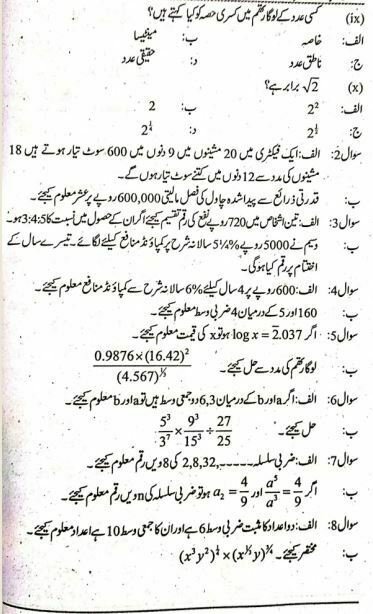 (ix) کسی عدد کے لوگارتھم میں کسری حصہ کو کیا کہتے ہیں؟
الف: خاصہ ب: مینٹیسا
ج: ناطق عدد د: حقیقی عدد
(x) √2 برابر ہے؟
الف: 2² ب: 2
ج: د:
سوال2: الف: ایک فیکٹری میں 20 مشینوں میں 9 دنوں میں 600 سوٹ تیار ہوتے ہیں 18
مشینوں کی مدد سے 12 دنوں میں کتنے سوٹ تیار ہوں گے۔
ب: قدرتی ذرائع سے پیدا شدہ چاول کی فصل مالیتی 600,000 روپے پر عشر معلوم کیجئے۔
سوال3: الف: تین اشخاص میں 720 روپے نفع کی رقم تقسیم کیجئے اگر ان کے حصوں میں نسبت 3:4:5 ہو۔
ب: وسیم نے 5000 روپے 5¼% سالانہ شرح پر کمپاؤنڈ منافع کیلئے لگائے۔ تیسرے سال کے
اختتام پر رقم کیا ہوگی۔
سوال4: الف: 600 روپے پر 4 سال کیلئے 6% سالانہ شرح سے کمپاؤنڈ منافع معلوم کیجئے۔
ب: 160 اور 5 کے درمیان 4 ضربی وسط معلوم کیجئے۔
سوال5: الف: اگر log x = 2̅.037 ہو تو x کی قیمت معلوم کیجئے۔
ب: لوگارتھم کی مدد سے حل کیجئے۔ 0.9876 × (16.42)² / (4.567)^⅓
سوال6: الف: اگر a اور b کے درمیان 6,3 دو جمعی وسط ہیں تو a اور b معلوم کیجئے۔
ب: حل کیجئے۔ 5³/3⁷ × 9³/15³ ÷ 27/25
سوال7: الف: ضربی سلسلہ 2,8,32,------ کی 8 ویں رقم معلوم کیجئے۔
ب: اگر a⁵/a³ = 4/9 اور a₂ = 4/9 ہو تو ضربی سلسلہ کی n ویں رقم معلوم کیجئے۔
سوال8: الف: دو اعداد کا مثبت ضربی وسط 6 ہے اور ان کا جمعی وسط 10 ہے اعداد معلوم کیجئے۔
ب: مختصر کیجئے۔